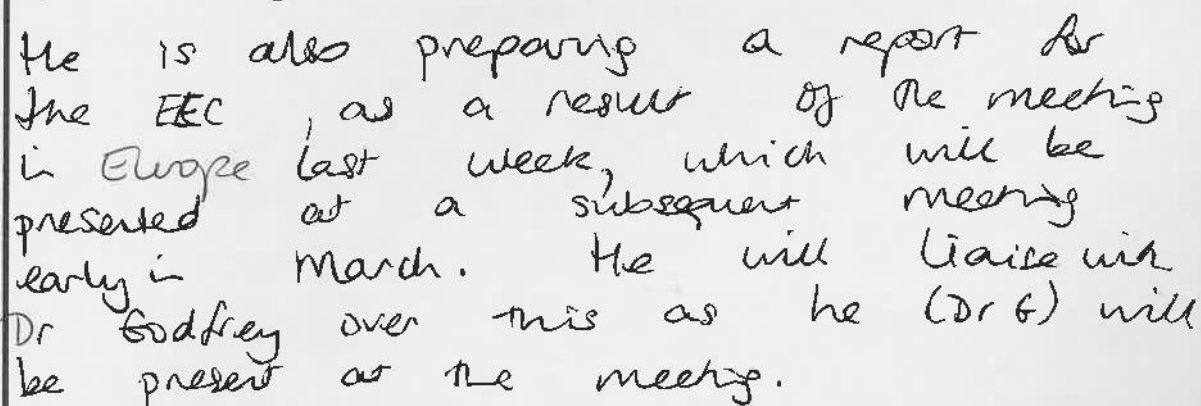 He is also preparing a report for
the EEC, as a result of the meeting
in Europe last week, which will be
presented at a subsequent meeting
early in March. He will liaise with
Dr Godfrey over this as he (Dr G) will
be present at the meeting.